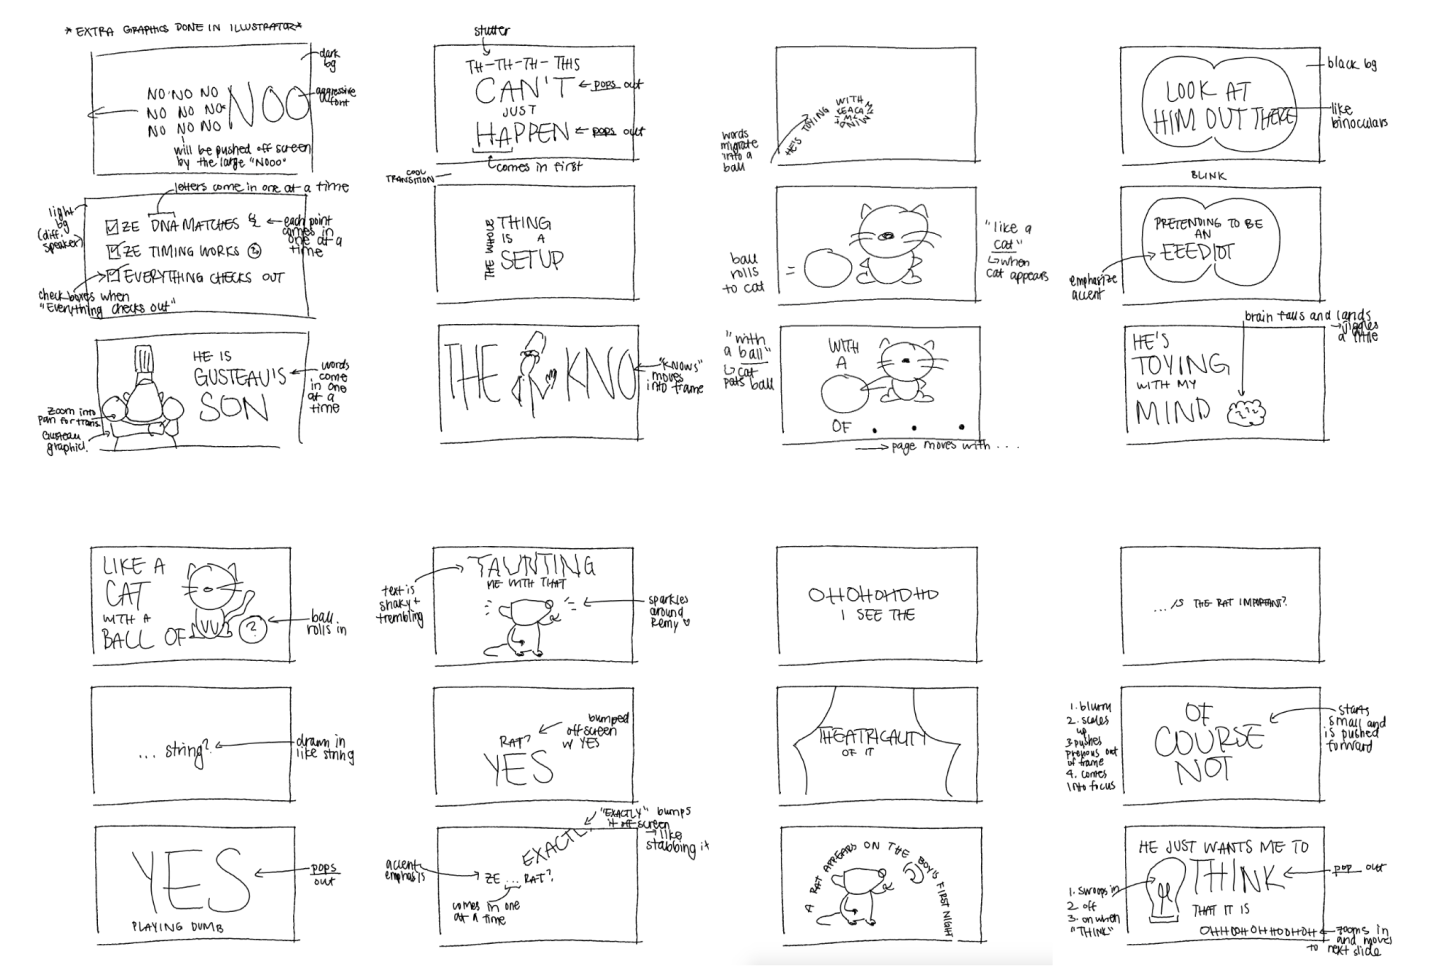 *EXTRA GRAPHICS DONE IN ILLUSTRATOR*
dark
bg
NO NO NO
NO NO NO
NO NO NO
NOO
aggressive
font
will be pushed off screen
by the large "Nooo"
letters come in one at a time
light
bg
(diff.
speaker)
ZE DNA MATCHES
ZE TIMING WORKS
EVERYTHING CHECKS OUT
each point
comes in
one at a
time
check boxes when
"Everything checks out"
HE IS
GUSTEAU'S
SON
words
come
in one
at a
time
zoom into
pan for trans.
Gusteau
graphic
stutter
TH-TH-TH-THIS
CAN'T
JUST
HAPPEN
pops out
pops out
comes in first
COOL
TRANSITION
THE WHOLE
THING
IS A
SETUP
THE KNO
"KNOWS"
moves
into frame
words
migrate
into a
ball
HE'S TOYING WITH
ball
rolls
to cat
=
"like a
cat"
when
cat appears
"with
a ball"
cat
pats ball
WITH
A
OF . . .
page moves with ...
black bg
LOOK AT
HIM OUT THERE
like
binoculars
BLINK
PRETENDING TO BE
AN
EEEDIOT
emphasize
accent
brain falls and lands
jiggles
a little
HE'S
TOYING
WITH MY
MIND
LIKE A
CAT
WITH A
BALL OF
?
ball
rolls in
... string?
drawn in
like string
YES
PLAYING DUMB
pops
out
TAUNTING
ME WITH THAT
text is
shaky +
trembling
sparkles
around
Remy
RAT?
YES
bumped
off screen
w YES
"EXACTLY" bumps
it off screen
like
stabbing it
EXACTLY
accent
emphasis
ZE ... RAT?
comes in one
at a time
OHOHOHOHO
I SEE THE
THEATRICALITY
OF IT
A RAT APPEARS ON THE BOY'S FIRST NIGHT
... IS THE RAT IMPORTANT?
1. blurry
2. scales
up
3. pushes
previous out
of frame
4. comes
into focus
OF
COURSE
NOT
starts
small and
is pushed
forward
HE JUST WANTS ME TO
THINK
THAT IT IS
pop out
1. swoops in
2. off
3. on when
"THINK"
OHHOOHOHHOHOHOH
zooms in
and moves
to next slide